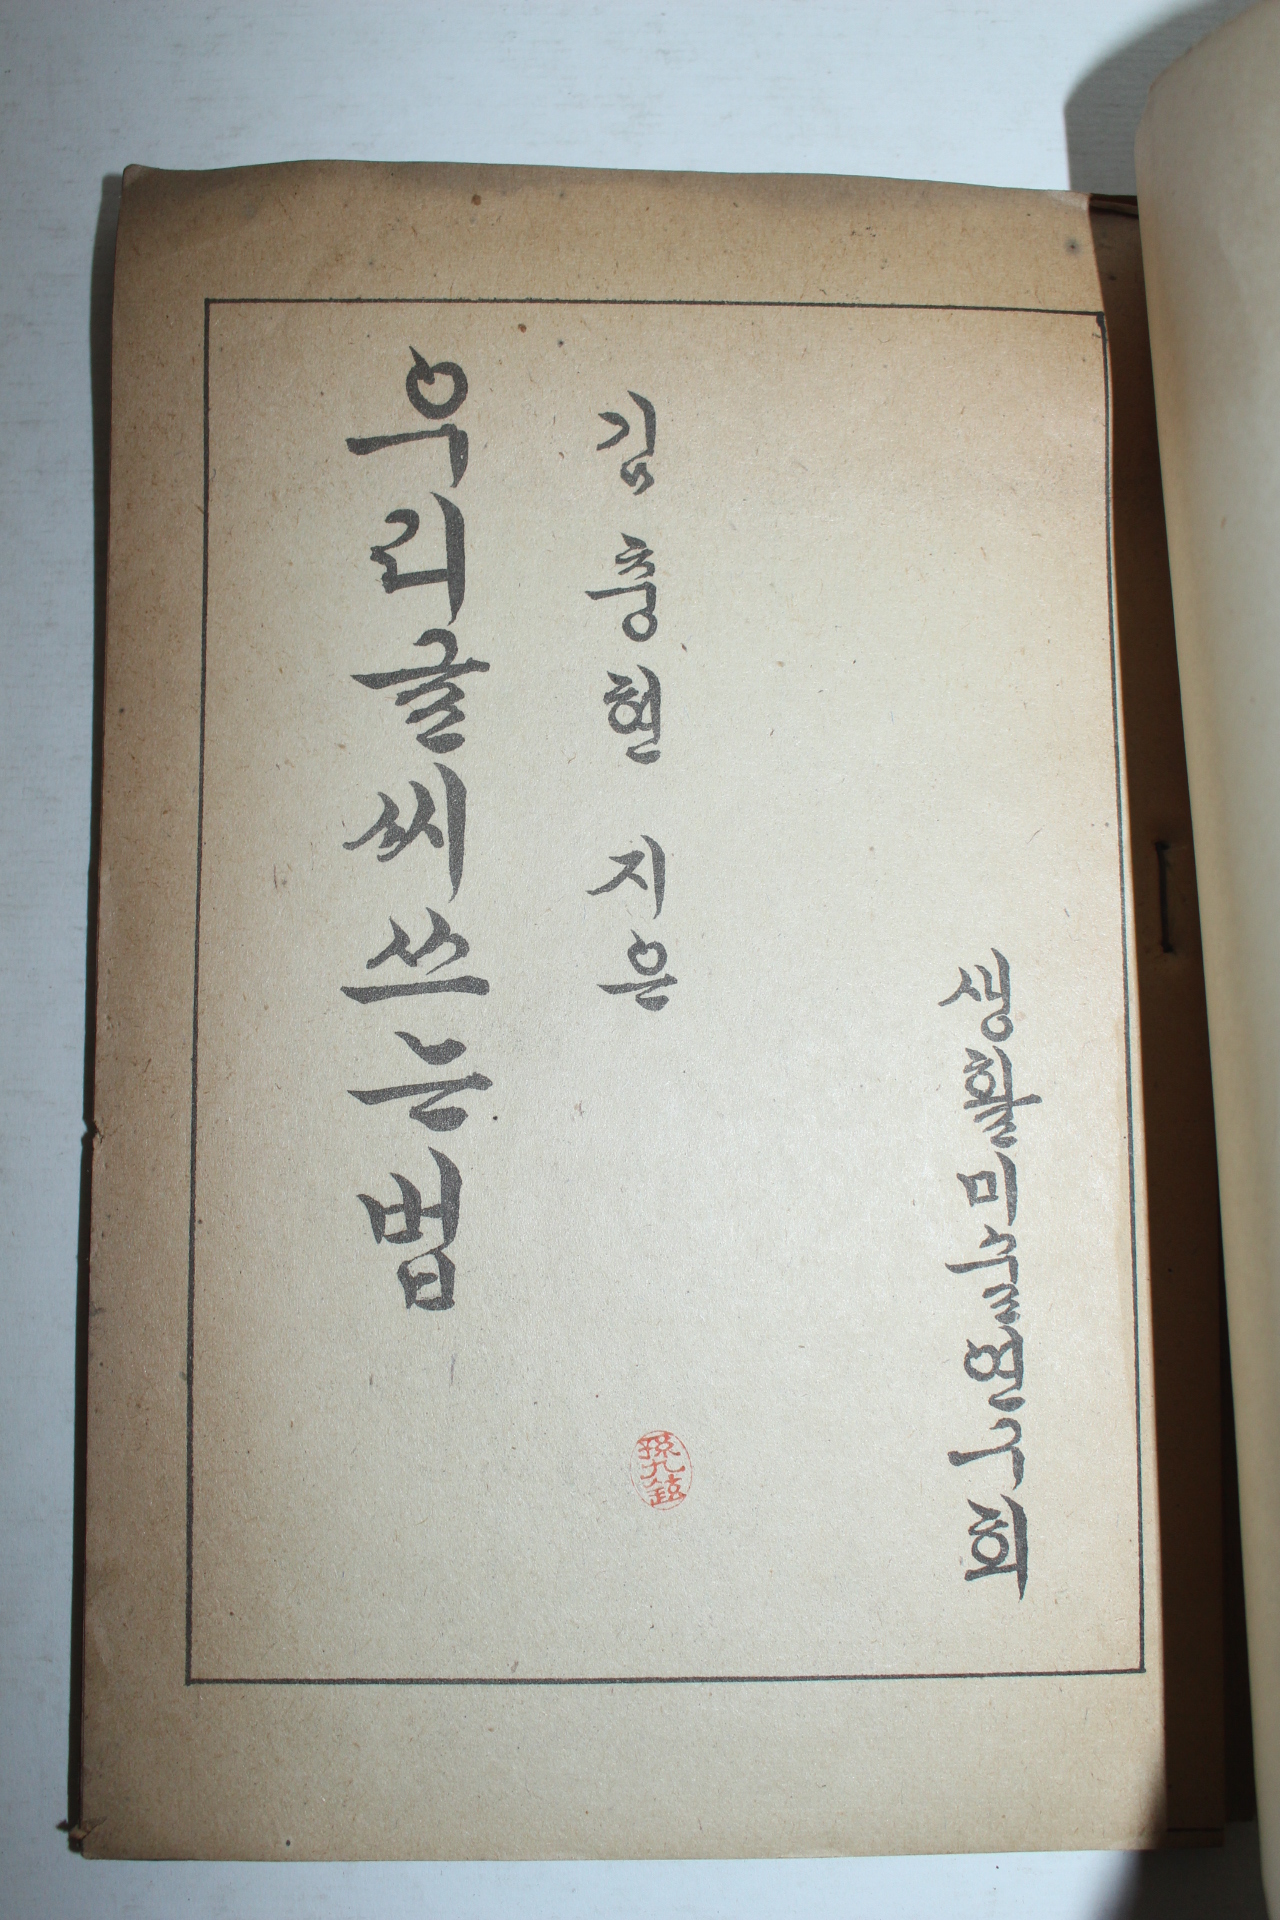 우리글씨쓰는법
김충현 지은
생활미술연구회
孫九鉉